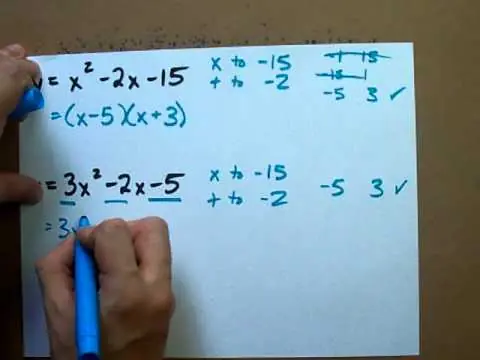 y = x² - 2x - 15 x to -15
+ to -2
-5 3 ✓
= (x-5)(x+3)
= 3x² - 2x - 5 x to -15
+ to -2 -5 3 ✓
= 3x